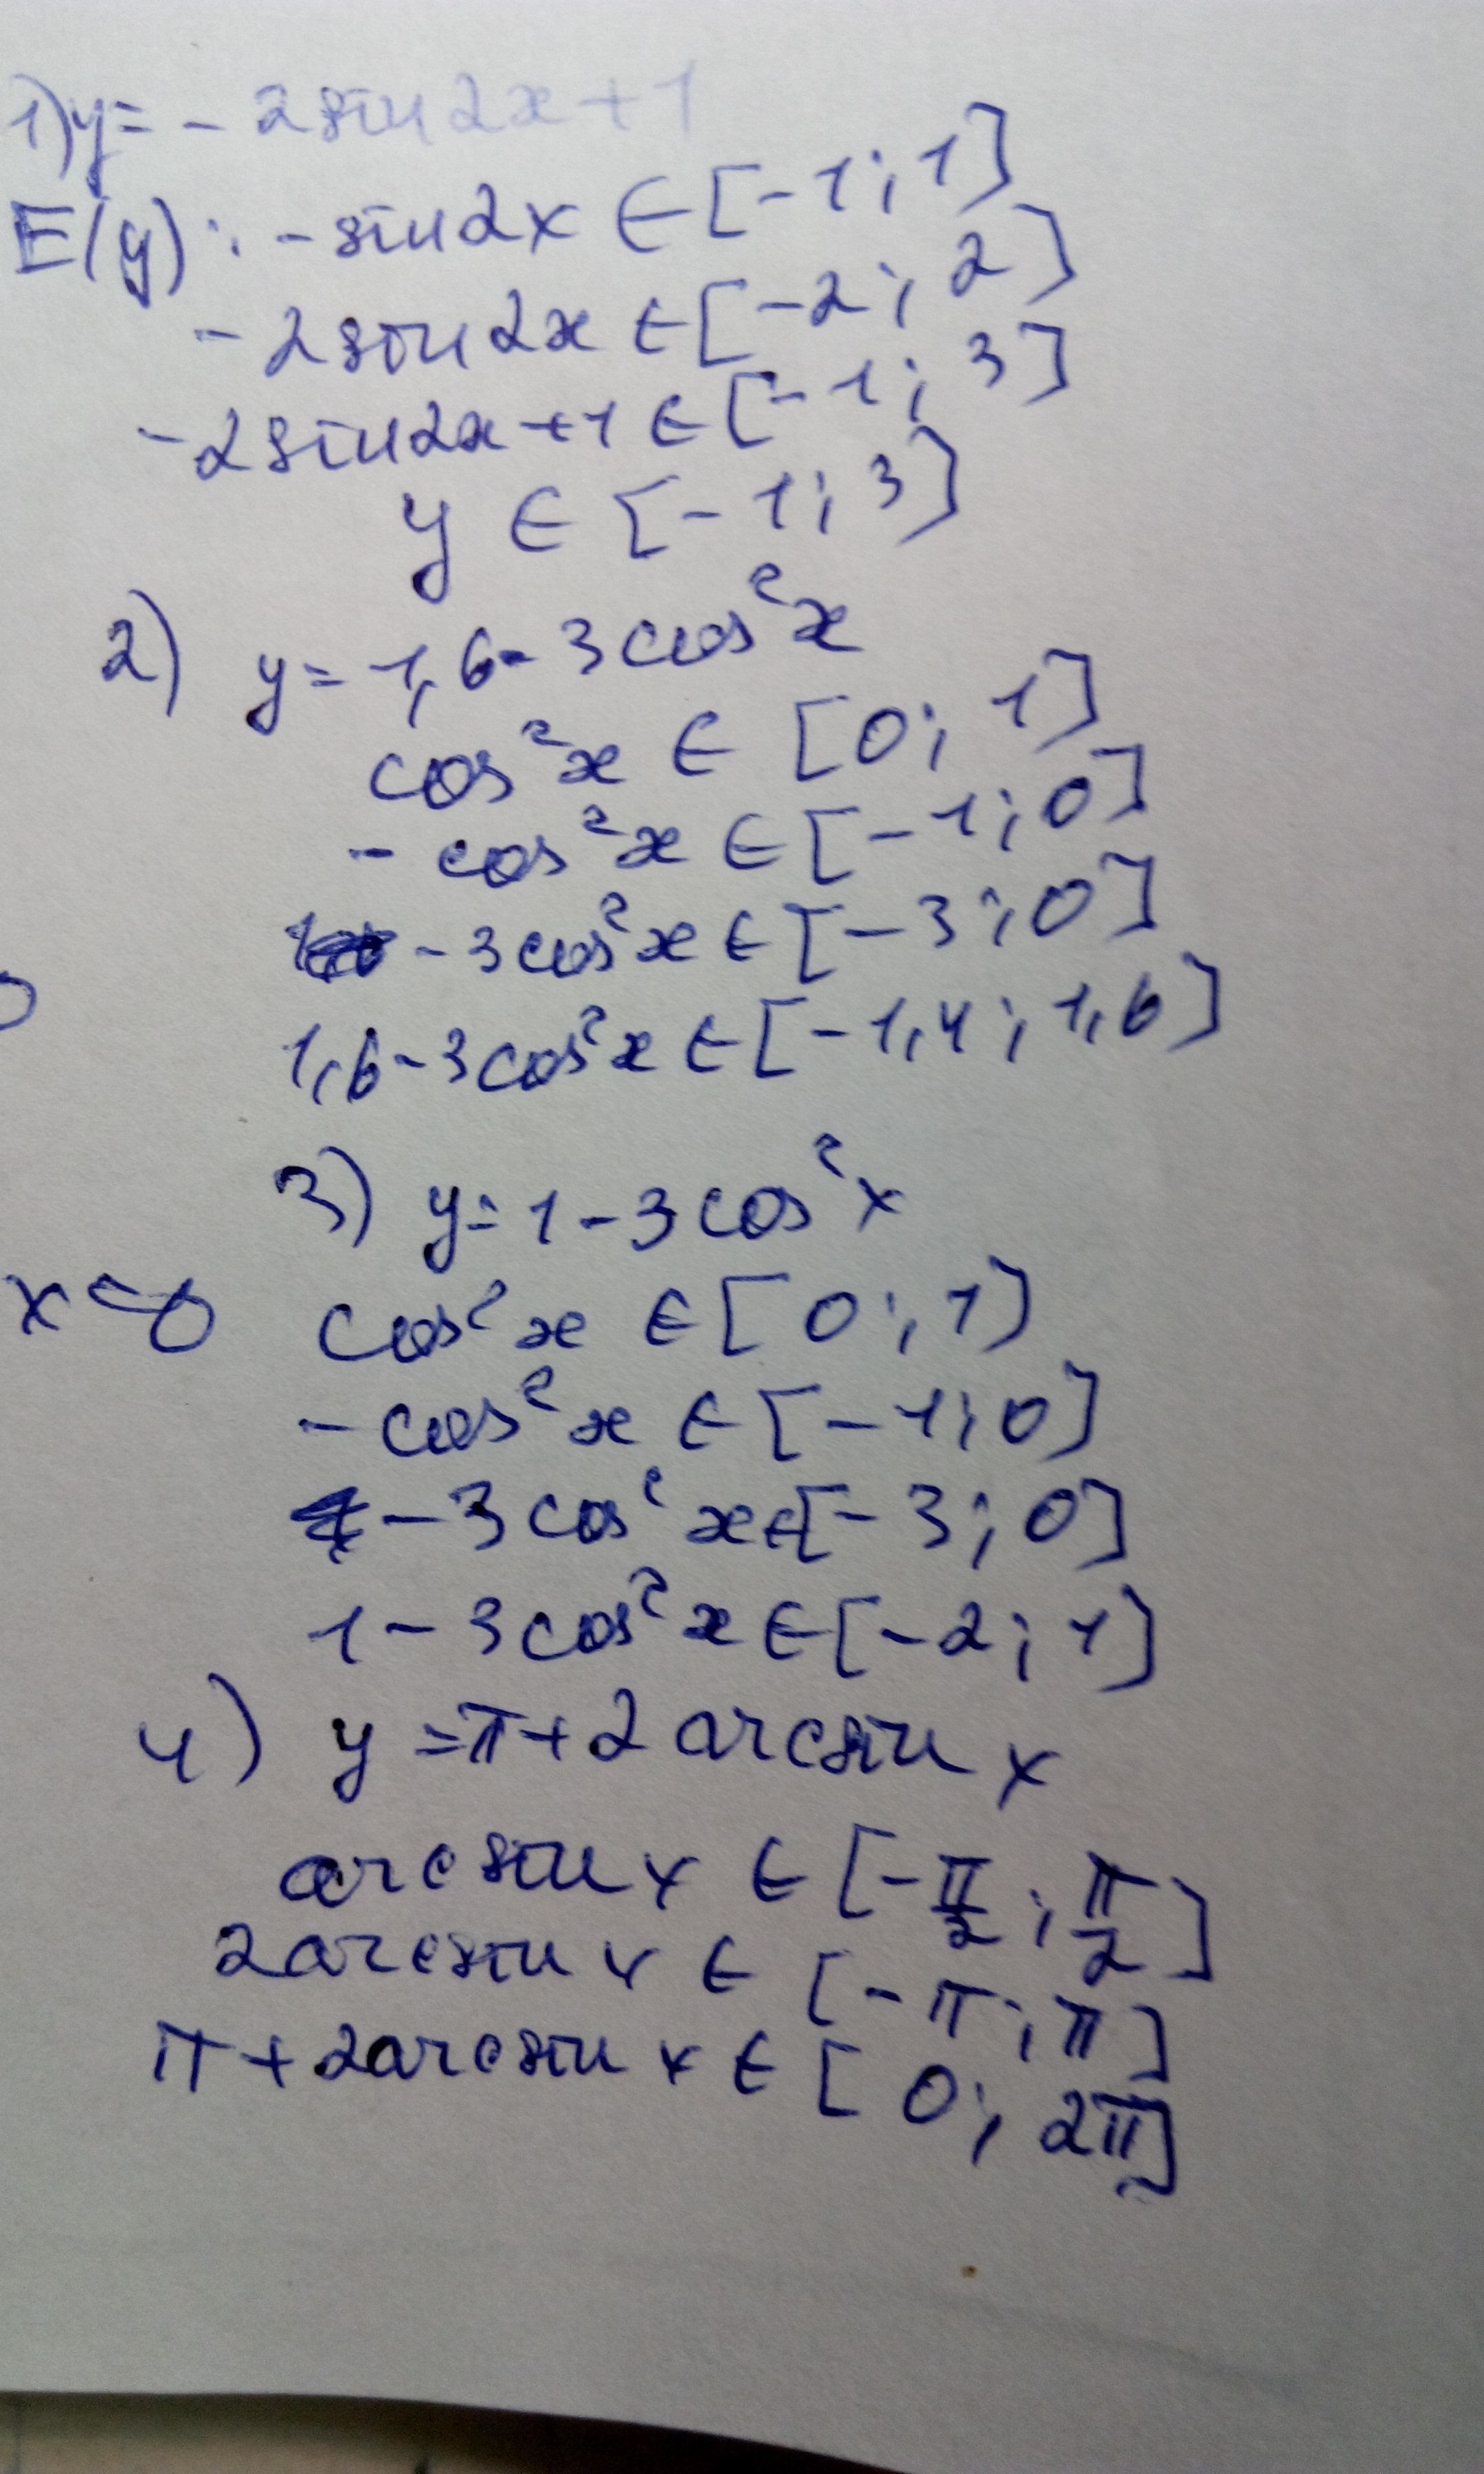 1) y = - 2 sin 2x + 1
E(y): - sin 2x ∈ [-1; 1]
- 2 sin 2x ∈ [-2; 2]
- 2 sin 2x + 1 ∈ [-1; 3]
y ∈ [-1; 3]
2) y = 1,6 - 3 cos²x
cos²x ∈ [0; 1]
- cos²x ∈ [-1; 0]
- 3 cos²x ∈ [-3; 0]
1,6 - 3 cos²x ∈ [-1,4; 1,6]
3) y = 1 - 3 cos²x
x = 0
cos²x ∈ [0; 1]
- cos²x ∈ [-1; 0]
- 3 cos²x ∈ [-3; 0]
1 - 3 cos²x ∈ [-2; 1]
4) y = π + 2 arcsin x
arcsin x ∈ [-π/2; π/2]
2 arcsin x ∈ [-π; π]
π + 2 arcsin x ∈ [0; 2π]